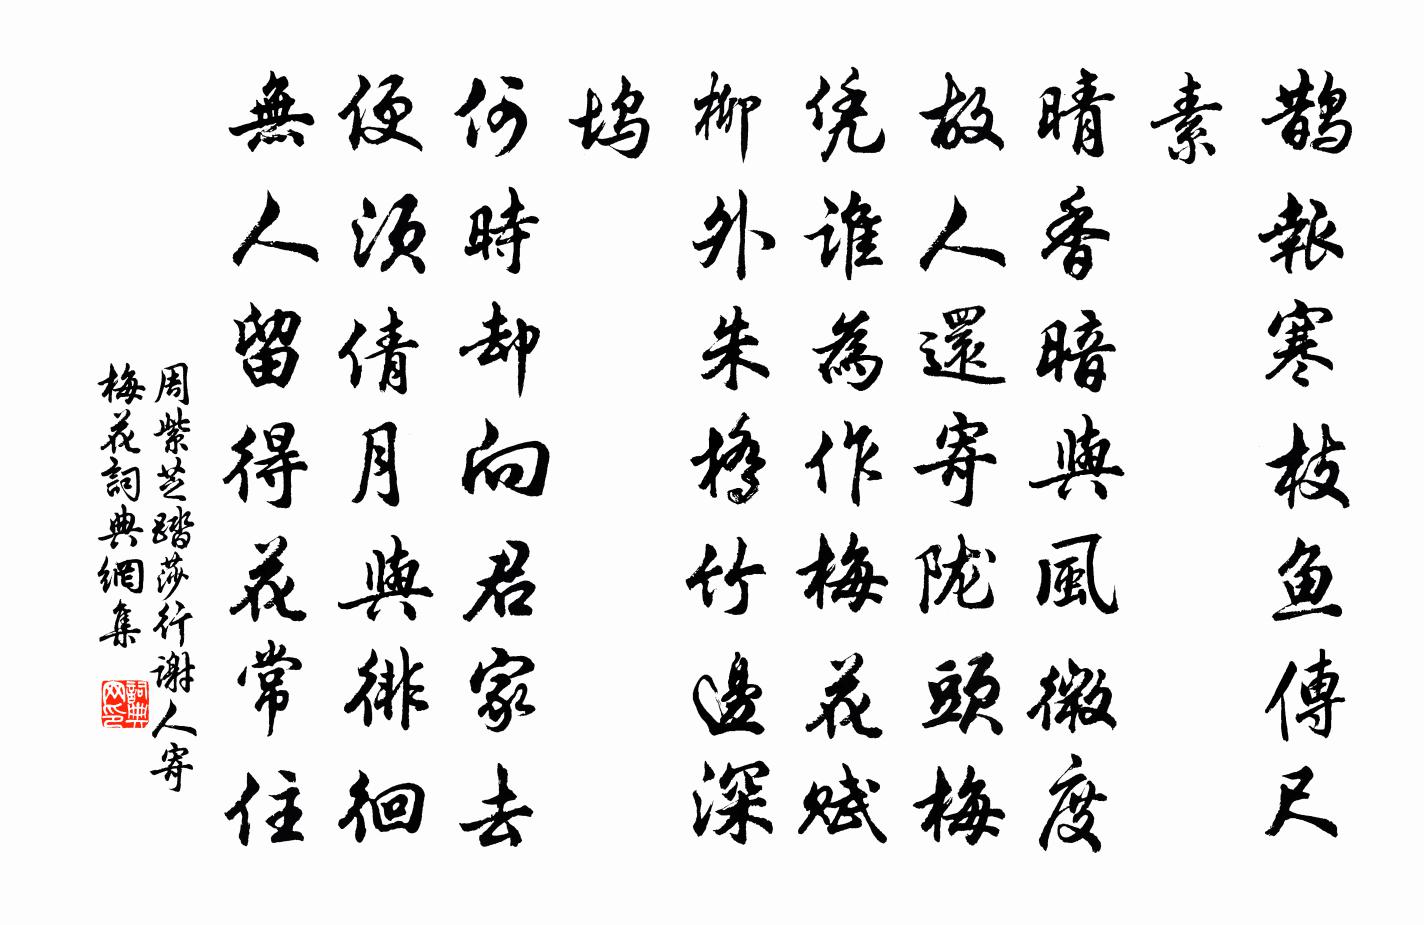 鹊報寒枝魚傳尺
素
晴香暗與風微度
故人還寄陇頭梅
凭誰為作梅花賦
柳外朱橋竹邊深
坞
何時却向君家去
便須倩月與徘徊
無人留得花常住
周紫芝踏莎行谢人寄
梅花詞典網集
詞典
网印